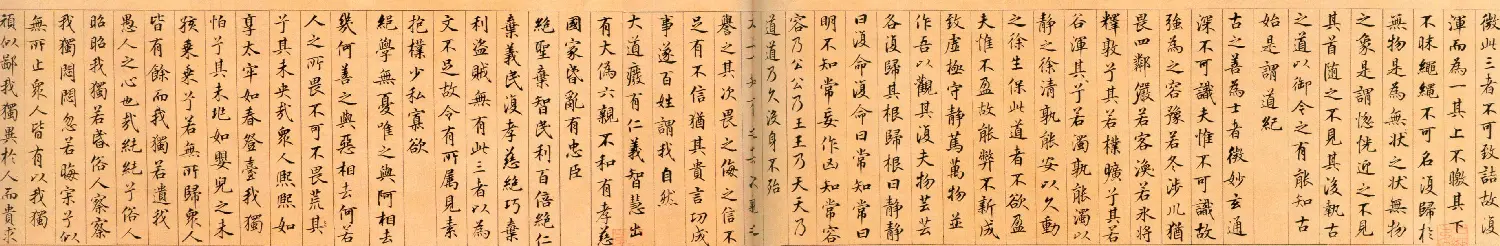 微此三者不可致詰故復
渾而為一其上不皦其下
不昧繩繩不可名復歸於
無物是為無狀之狀無物
之象是謂惚恍近之不見
其首隨之不見其後執古
之道以御今之有能知古
始是謂道紀
古之善為士者微妙玄通
深不可識夫惟不可識故
強為之容豫若冬涉川猶
畏四鄰儼若客渙若冰將
釋敦兮其若樸曠兮其若
谷渾其兮若濁孰能濁以
靜之徐清孰能安以久動
之徐生保此道者不欲盈
夫惟不盈故能弊不新成
致虛極守靜萬萬物並
作吾以觀其復夫物芸芸
各復歸其根歸根曰靜靜
曰復命復命曰常知常曰
明不知常妄作凶知常容
容乃公公乃王王乃天天乃
道道乃久沒身不殆
譽之其次畏之侮之信不
足有不信猶其貴言功成
事遂百姓謂我自然
大道廢有仁義智慧出
有大偽六親不和有孝慈
國家昏亂有忠臣
絕聖棄智民利百倍絕仁
棄義民復孝慈絕巧棄
利盜賊無有此三者以為
文不足故令有所屬見素
抱樸少私寡欲
絕學無憂唯之與阿相去
幾何善之與惡相去何若
人之所畏不可不畏荒其
兮其未央哉眾人熙熙如
享太牢如春登臺我獨
怕兮其未兆如嬰兒之未
孩乘乘兮若無所歸眾人
皆有餘而我獨若遺我
愚人之心也哉純純兮俗人
昭昭我獨若昏俗人察察
我獨悶悶忽若晦寂兮似
無所止眾人皆有以我獨
頑似鄙我獨異於人而貴求